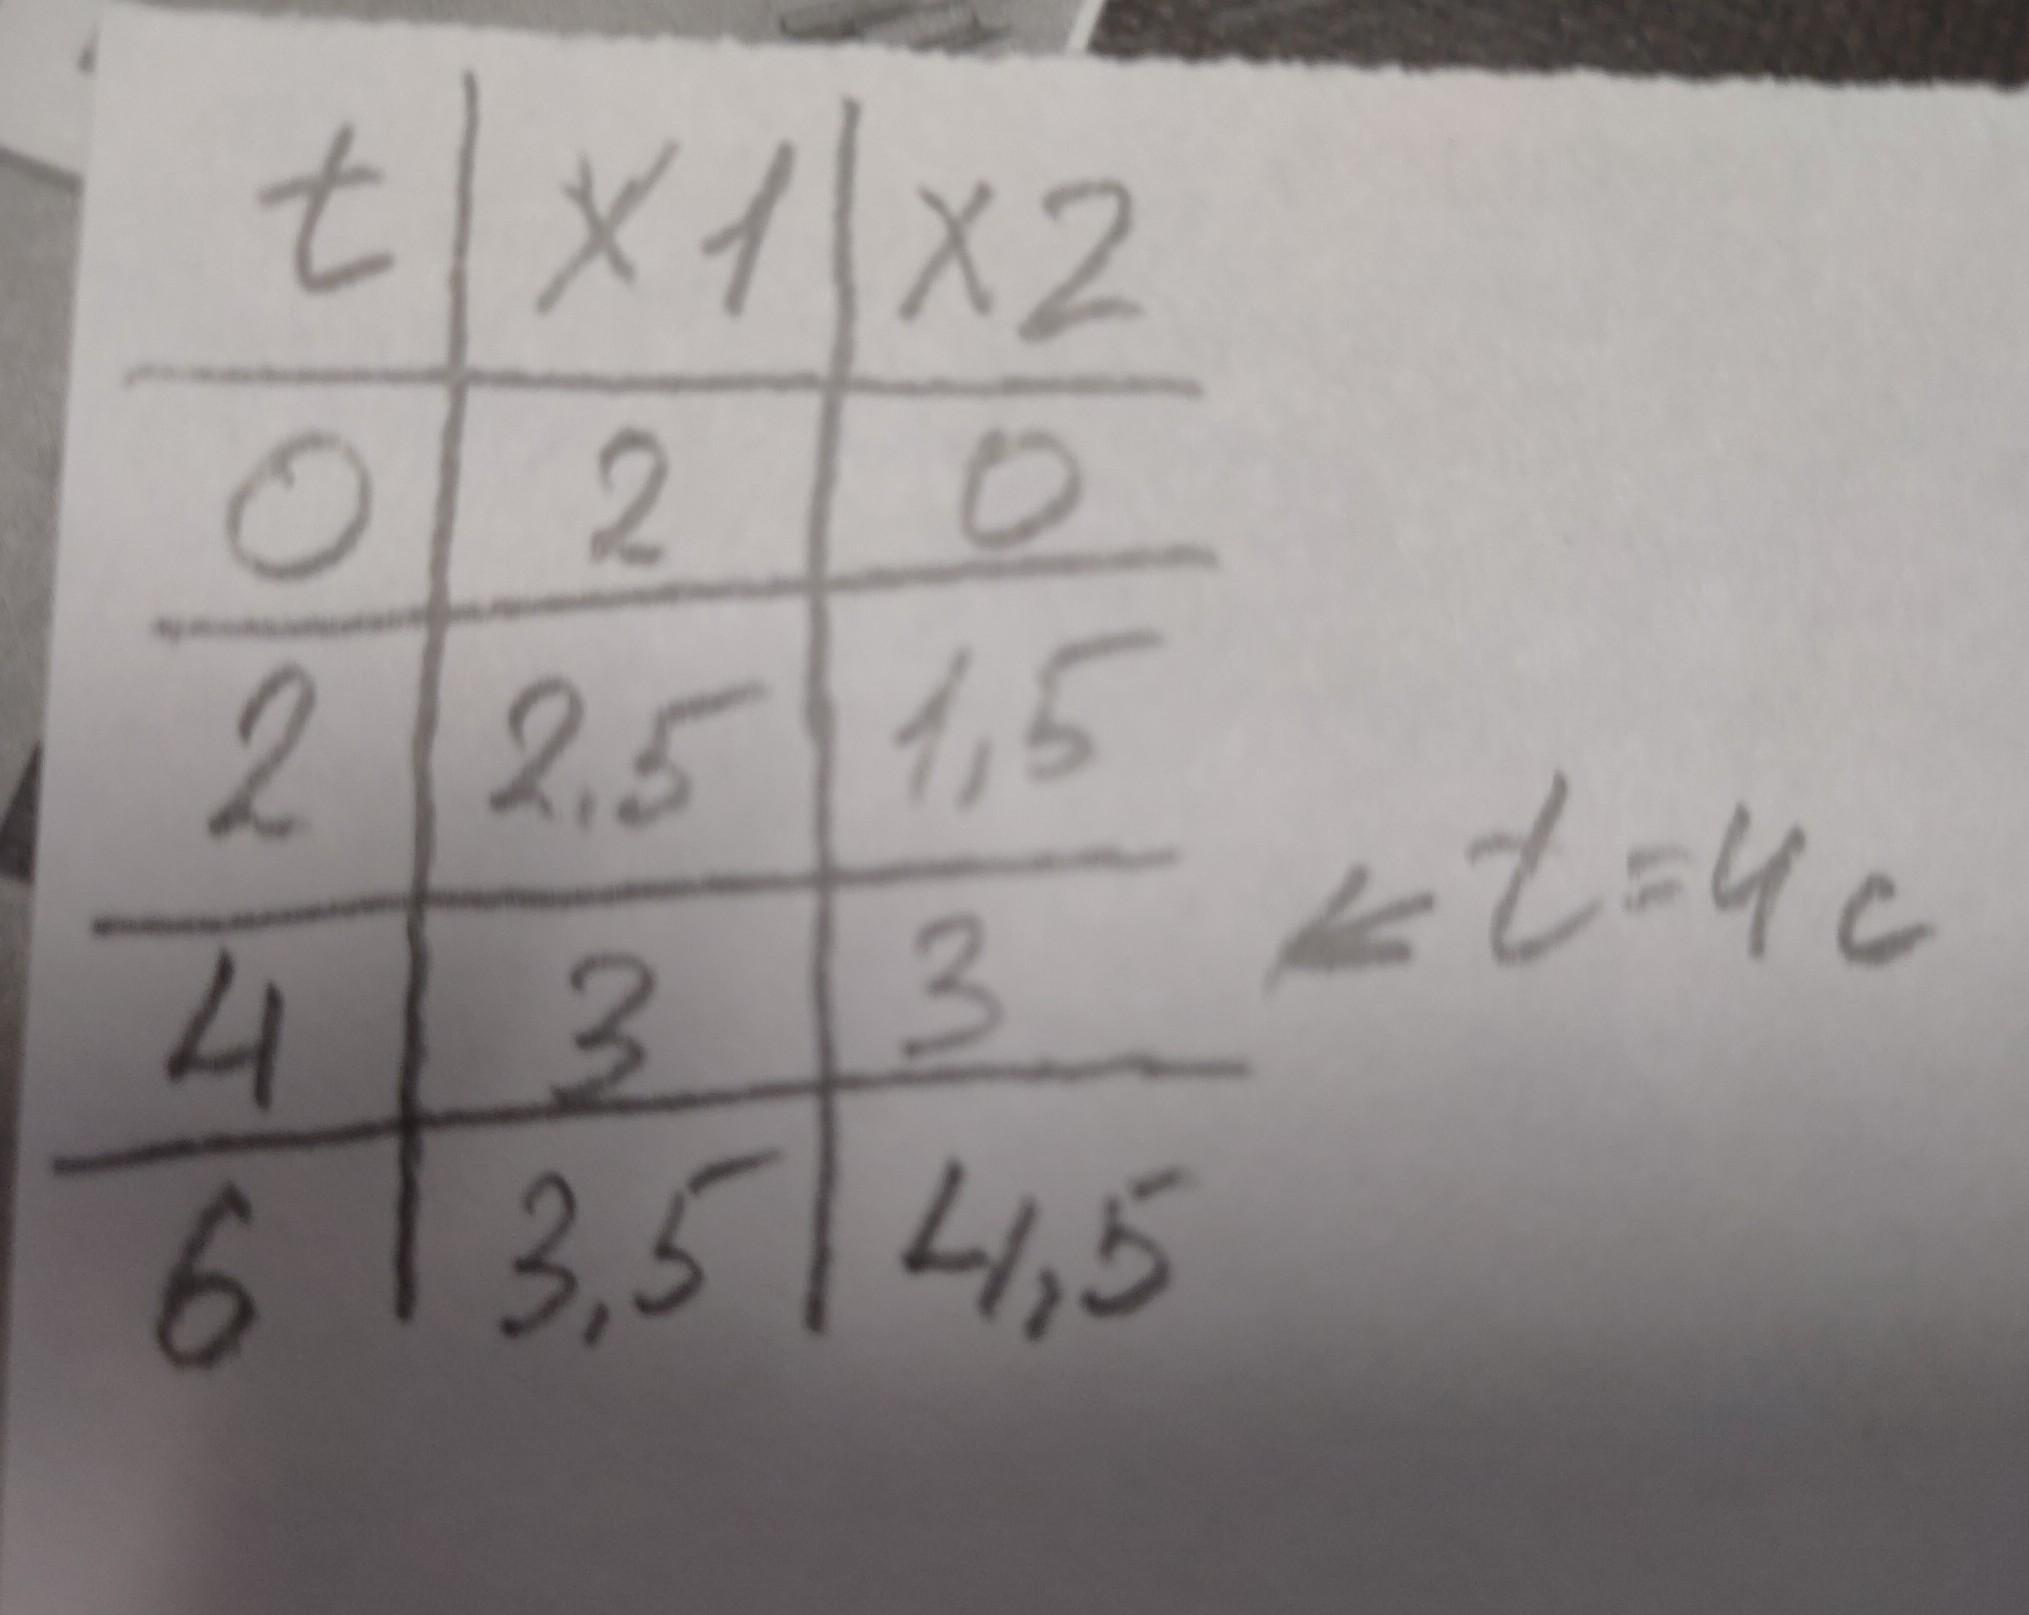 t x1 x2
0 2 0
2 2,5 1,5
4 3 3 ← t=4c
6 3,5 4,5